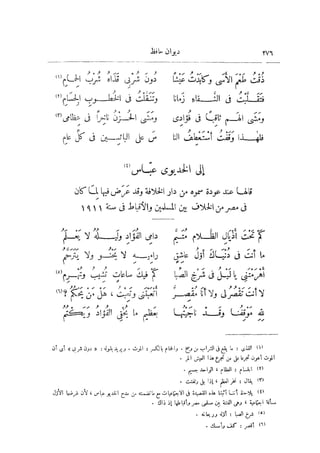 ٢٧٦ ديوان حافظ
ذُقتُ طَعمَ الأَسَى وكابَدْتُ عَيْشًا دُونَ شُرْبِى قَذَاهُ شُرْبُ الحِمامِ (١)
فتَقَلَّبْتُ فى الشَّقاءِ زَمانًا وتَنَقَّلْتُ فى الخُطُوبِ الجِسامِ (٢)
ومَشَى الهَمُّ ثاقِبًا فى فُؤادِى ومَشَى الحُزْنُ ناخِرًا فى عِظامِى (٣)
فلِهذا وَقَفْتُ أَسْتَعطِفُ النا سَ على البائسِينَ فى كلِّ عامِ
إلى الخديوى عباس (٤)
قالها عند عودة سموّه من دار الخلافة وقد عرّض فيها لما كان
فى مصر من الخلاف بين المسلمين والأقباط فى سنة ١٩١١
كَمْ تَحْتَ أَذْيالِ الظَّلامِ مُتَيَّمُ دامِى الفُؤَادِ ولَيْلُهُ لا يَعْلَمُ
ما أنتَ فى دُنْياكَ أوّلُ عاشِقٍ رامِيهِ لا يَحْنُو ولا يَتَرَحَّمُ
أَهرَمْتَنِى يا لَيْلُ فى شَرْخِ الصِّبا كَمْ فيكَ ساعاتٌ تُشِيبُ وتُهْرِمُ (٥)
لا أنتَ تَقْصُرُ لى ولا أنا مُقْصِرٌ أَتْعَبْتَنِى وتَعِبْتَ، هَلْ مَنْ يَحْكُمُ؟ (٦)
لِلهِ مَوْقِفُنا وقَد ناجَيْتُها بعَظِيمِ ما يُخْفِى الفُؤَادُ ويَكْتُمُ
(١) القذى : ما يقع فى الشراب من وسخ. والحمام (بالكسر) : الموت. ويريد بقوله : «دون شربى» أى أن
الموت أهون تجرعا على من تجرع هذا العيش المر.
(٢) الجسام : العظام، الواحد جسيم.
(٣) يقال : نخر العظم، إذا بلى وتفتت.
(٤) يلاحظ أننا أثبتنا هذه القصيدة فى الاجتماعيات مع ما تضمنته من مدح الخديو عباس، لأن غرضها الأوّل
مسألة اجتماعية، وهى الفتنة بين مسلمى مصر وأقباطها إذ ذاك.
(٥) شرخ الصبا : أوّله وريعانه.
(٦) أقصر : كف وأمسك.